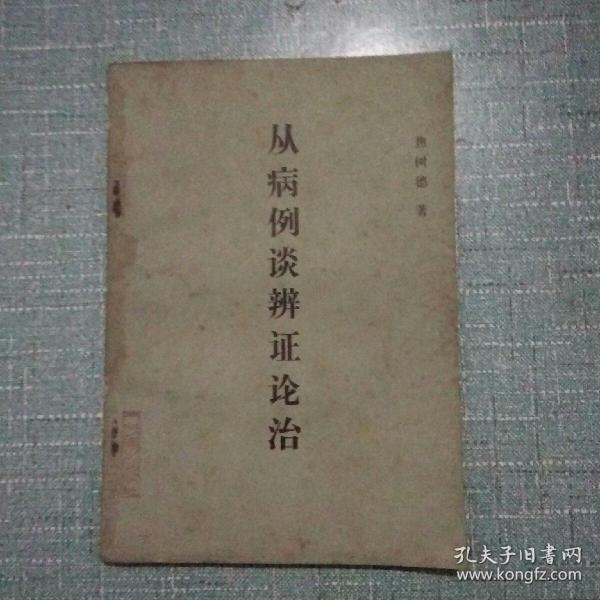 焦树德 著
从病例谈辨证论治
孔夫子旧书网
www.kongfz.com